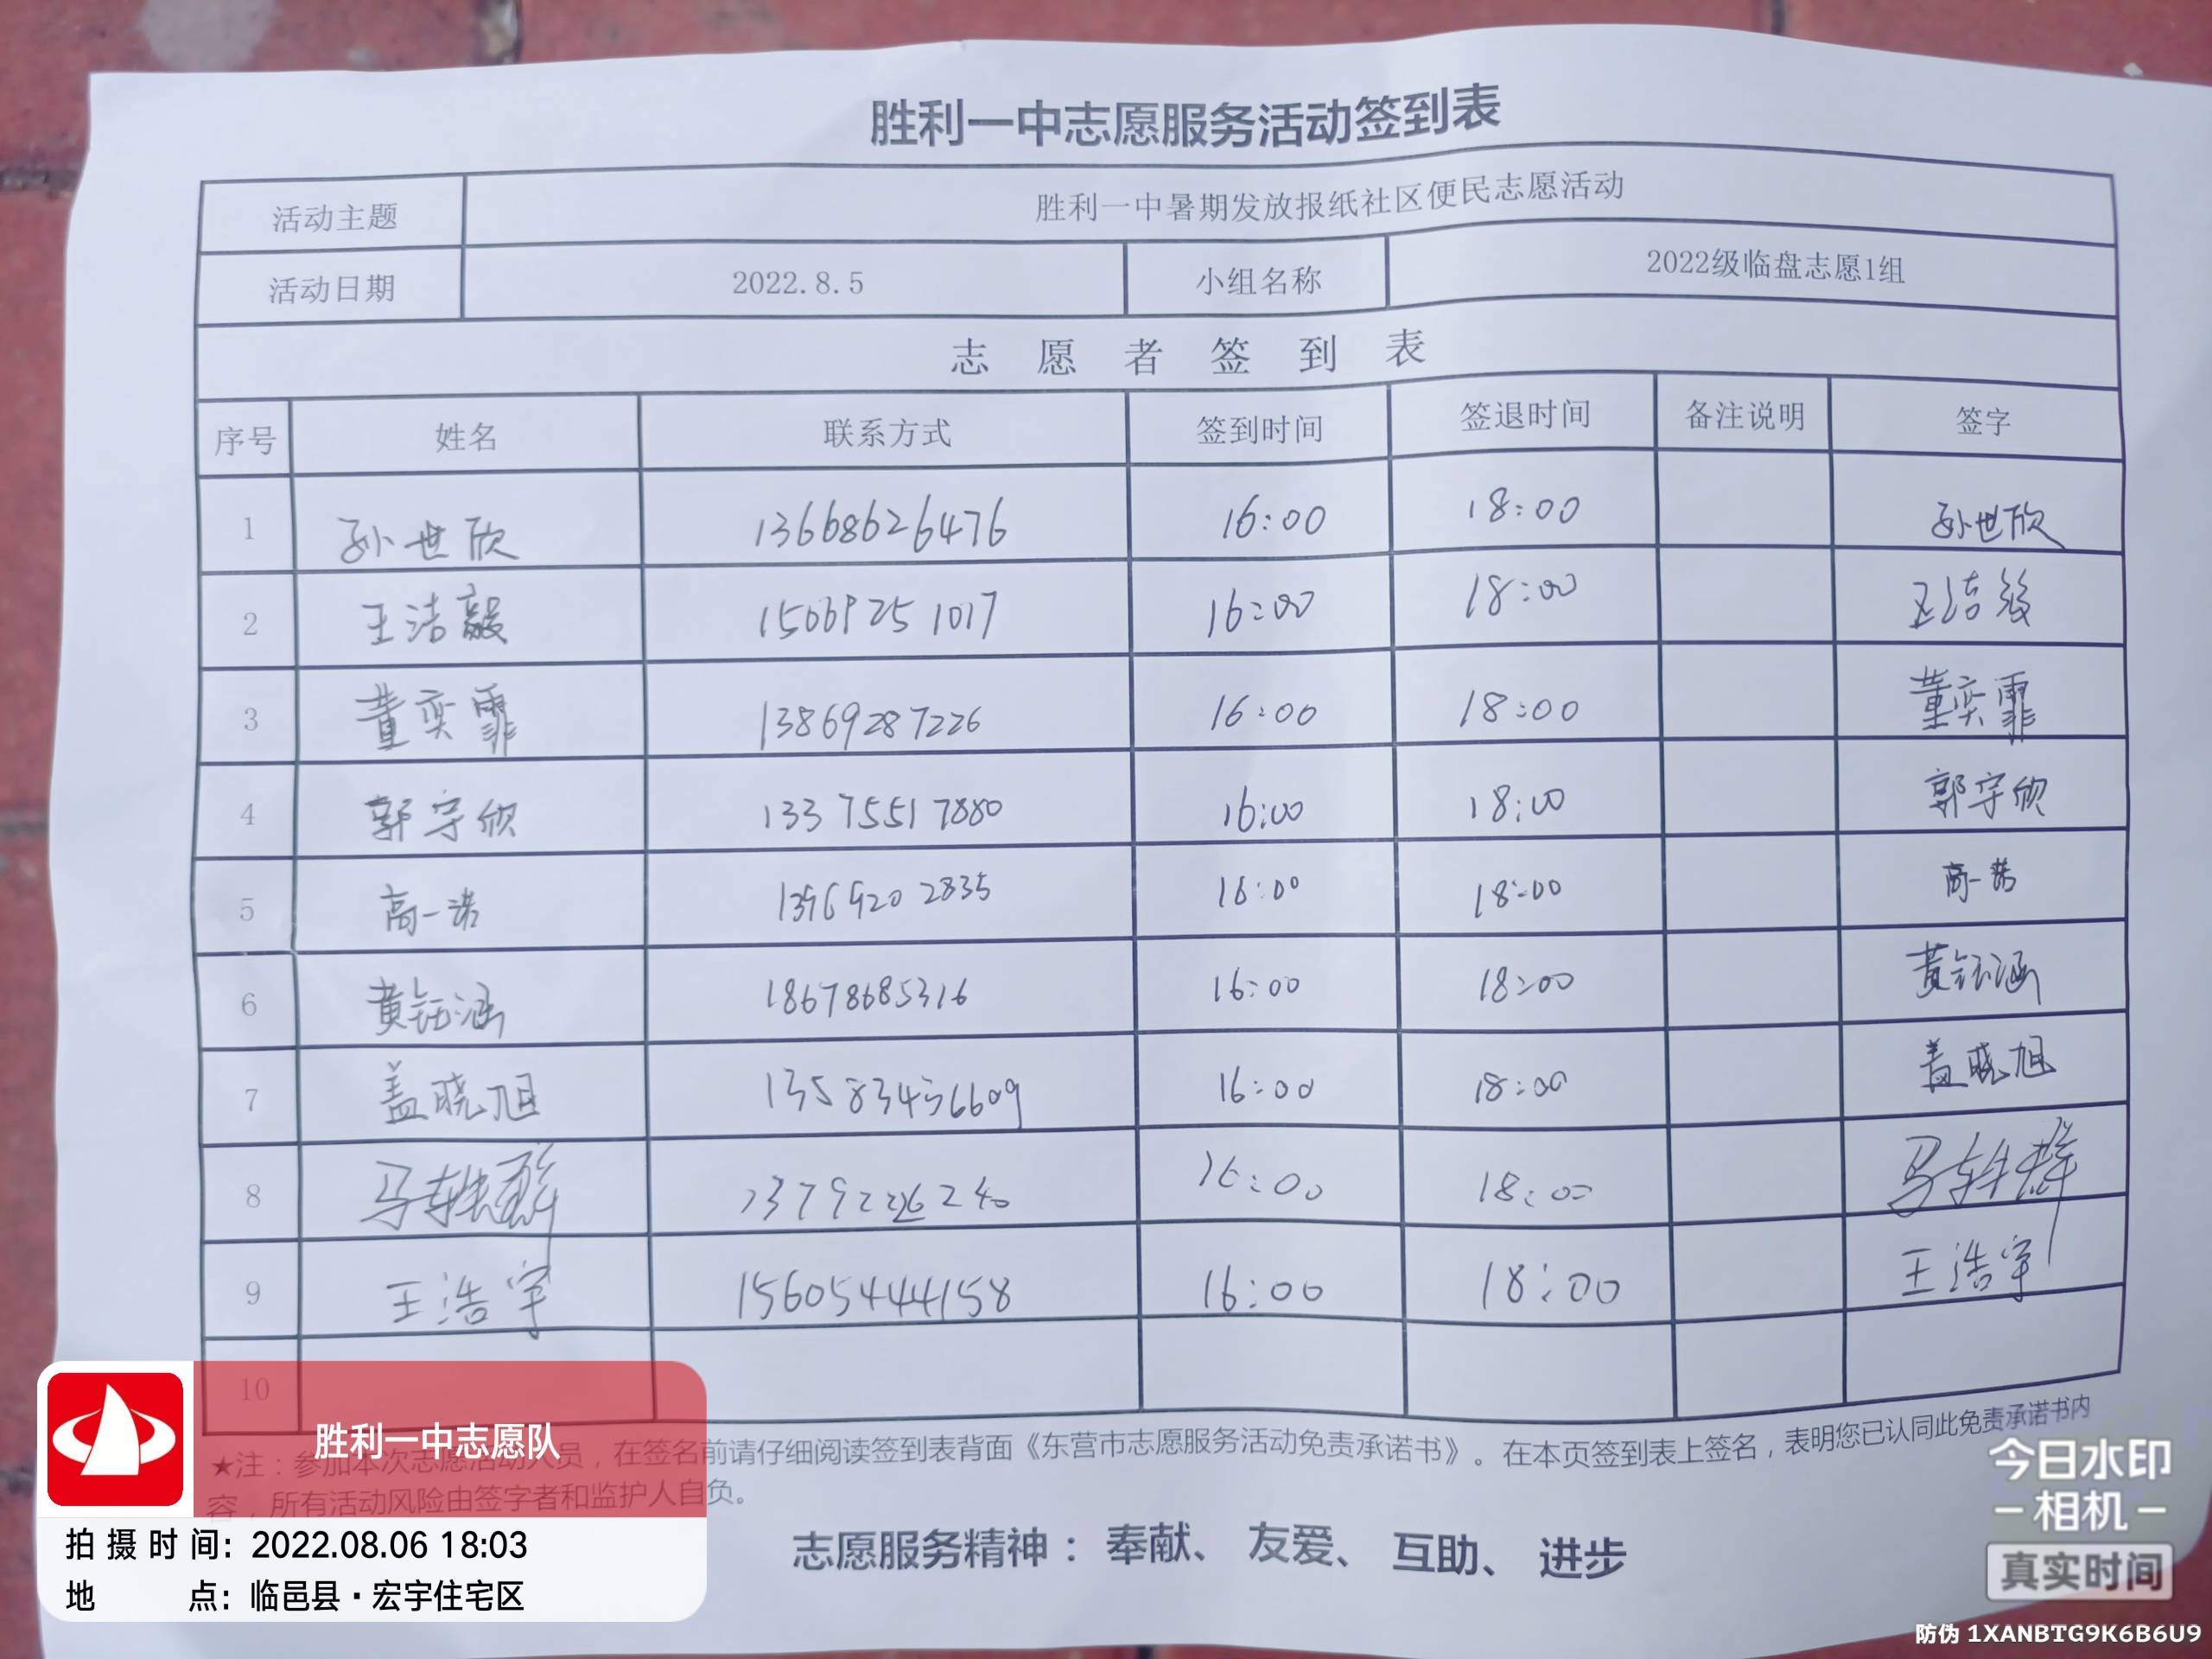 胜利一中志愿服务活动签到表
活动主题 胜利一中暑期发放报纸社区便民志愿活动
活动日期 2022.8.5 小组名称 2022级临盘志愿1组
志愿者签到表
序号 姓名 联系方式 签到时间 签退时间 备注说明 签字
1 孙世欣 13668626476 16:00 18:00 孙世欣
2 王洁毅 15069251017 16:00 18:00 王洁毅
3 董奕霏 13869287226 16:00 18:00 董奕霏
4 郭宇欣 13375517880 16:00 18:00 郭宇欣
5 高一诺 13969202835 16:00 18:00 高一诺
6 黄钰涵 18678685316 16:00 18:00 黄钰涵
7 盖晓旭 13583456609 16:00 18:00 盖晓旭
8 马轶群 16:00 18:00 马轶群
9 王浩宇 15605444158 16:00 18:00 王浩宇
10
★注：参加本次志愿活动人员，在签名前请仔细阅读签到表背面《东营市志愿服务活动免责承诺书》。在本页签到表上签名，表明您已认同此免责承诺书内
容，所有活动风险由签字者和监护人自负。
志愿服务精神：奉献、友爱、互助、进步
胜利一中志愿队
拍摄时间: 2022.08.06 18:03
地点: 临邑县·宏宇住宅区
今日水印
相机
真实时间
防伪 1XANBTG9K6B6U9